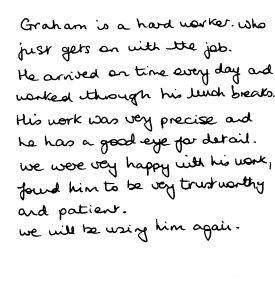 Graham is a hard worker. Who
just gets on with the job.
He arrived on time every day and
worked through his lunch breaks.
His work was very precise and
he has a good eye for detail.
we were very happy with his work,
found him to be very trustworthy
and patient.
we will be using him again.